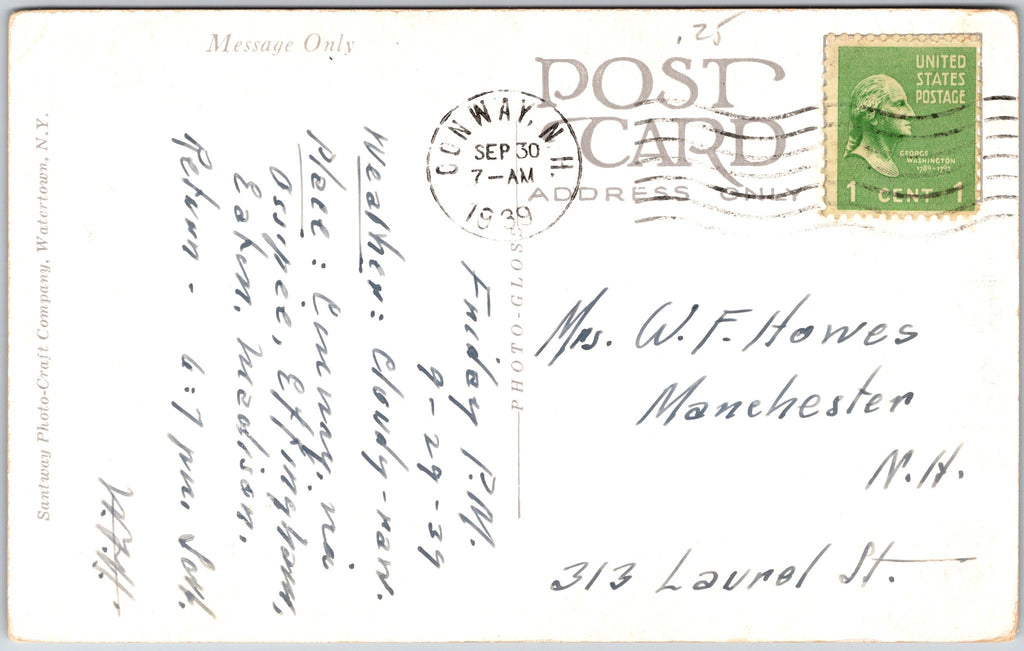 Message Only
.25
POST
CARD
ADDRESS ONLY
UNITED
STATES
POSTAGE
GEORGE
WASHINGTON
1789-1797
1 CENT 1
CONWAY, N.H.
SEP 30
7-AM
1939
Friday P.M.
9-29-39
Weather: Cloudy-raw.
Place: Conway. via
Ossipee, Effingham,
Eaton. Madison.
Return - 6:7 pm.
W.F.H.
Mrs. W. F. Howes
Manchester
N.H.
313 Laurel St.
PHOTO-GLOSS
Santway Photo-Craft Company, Watertown, N.Y.